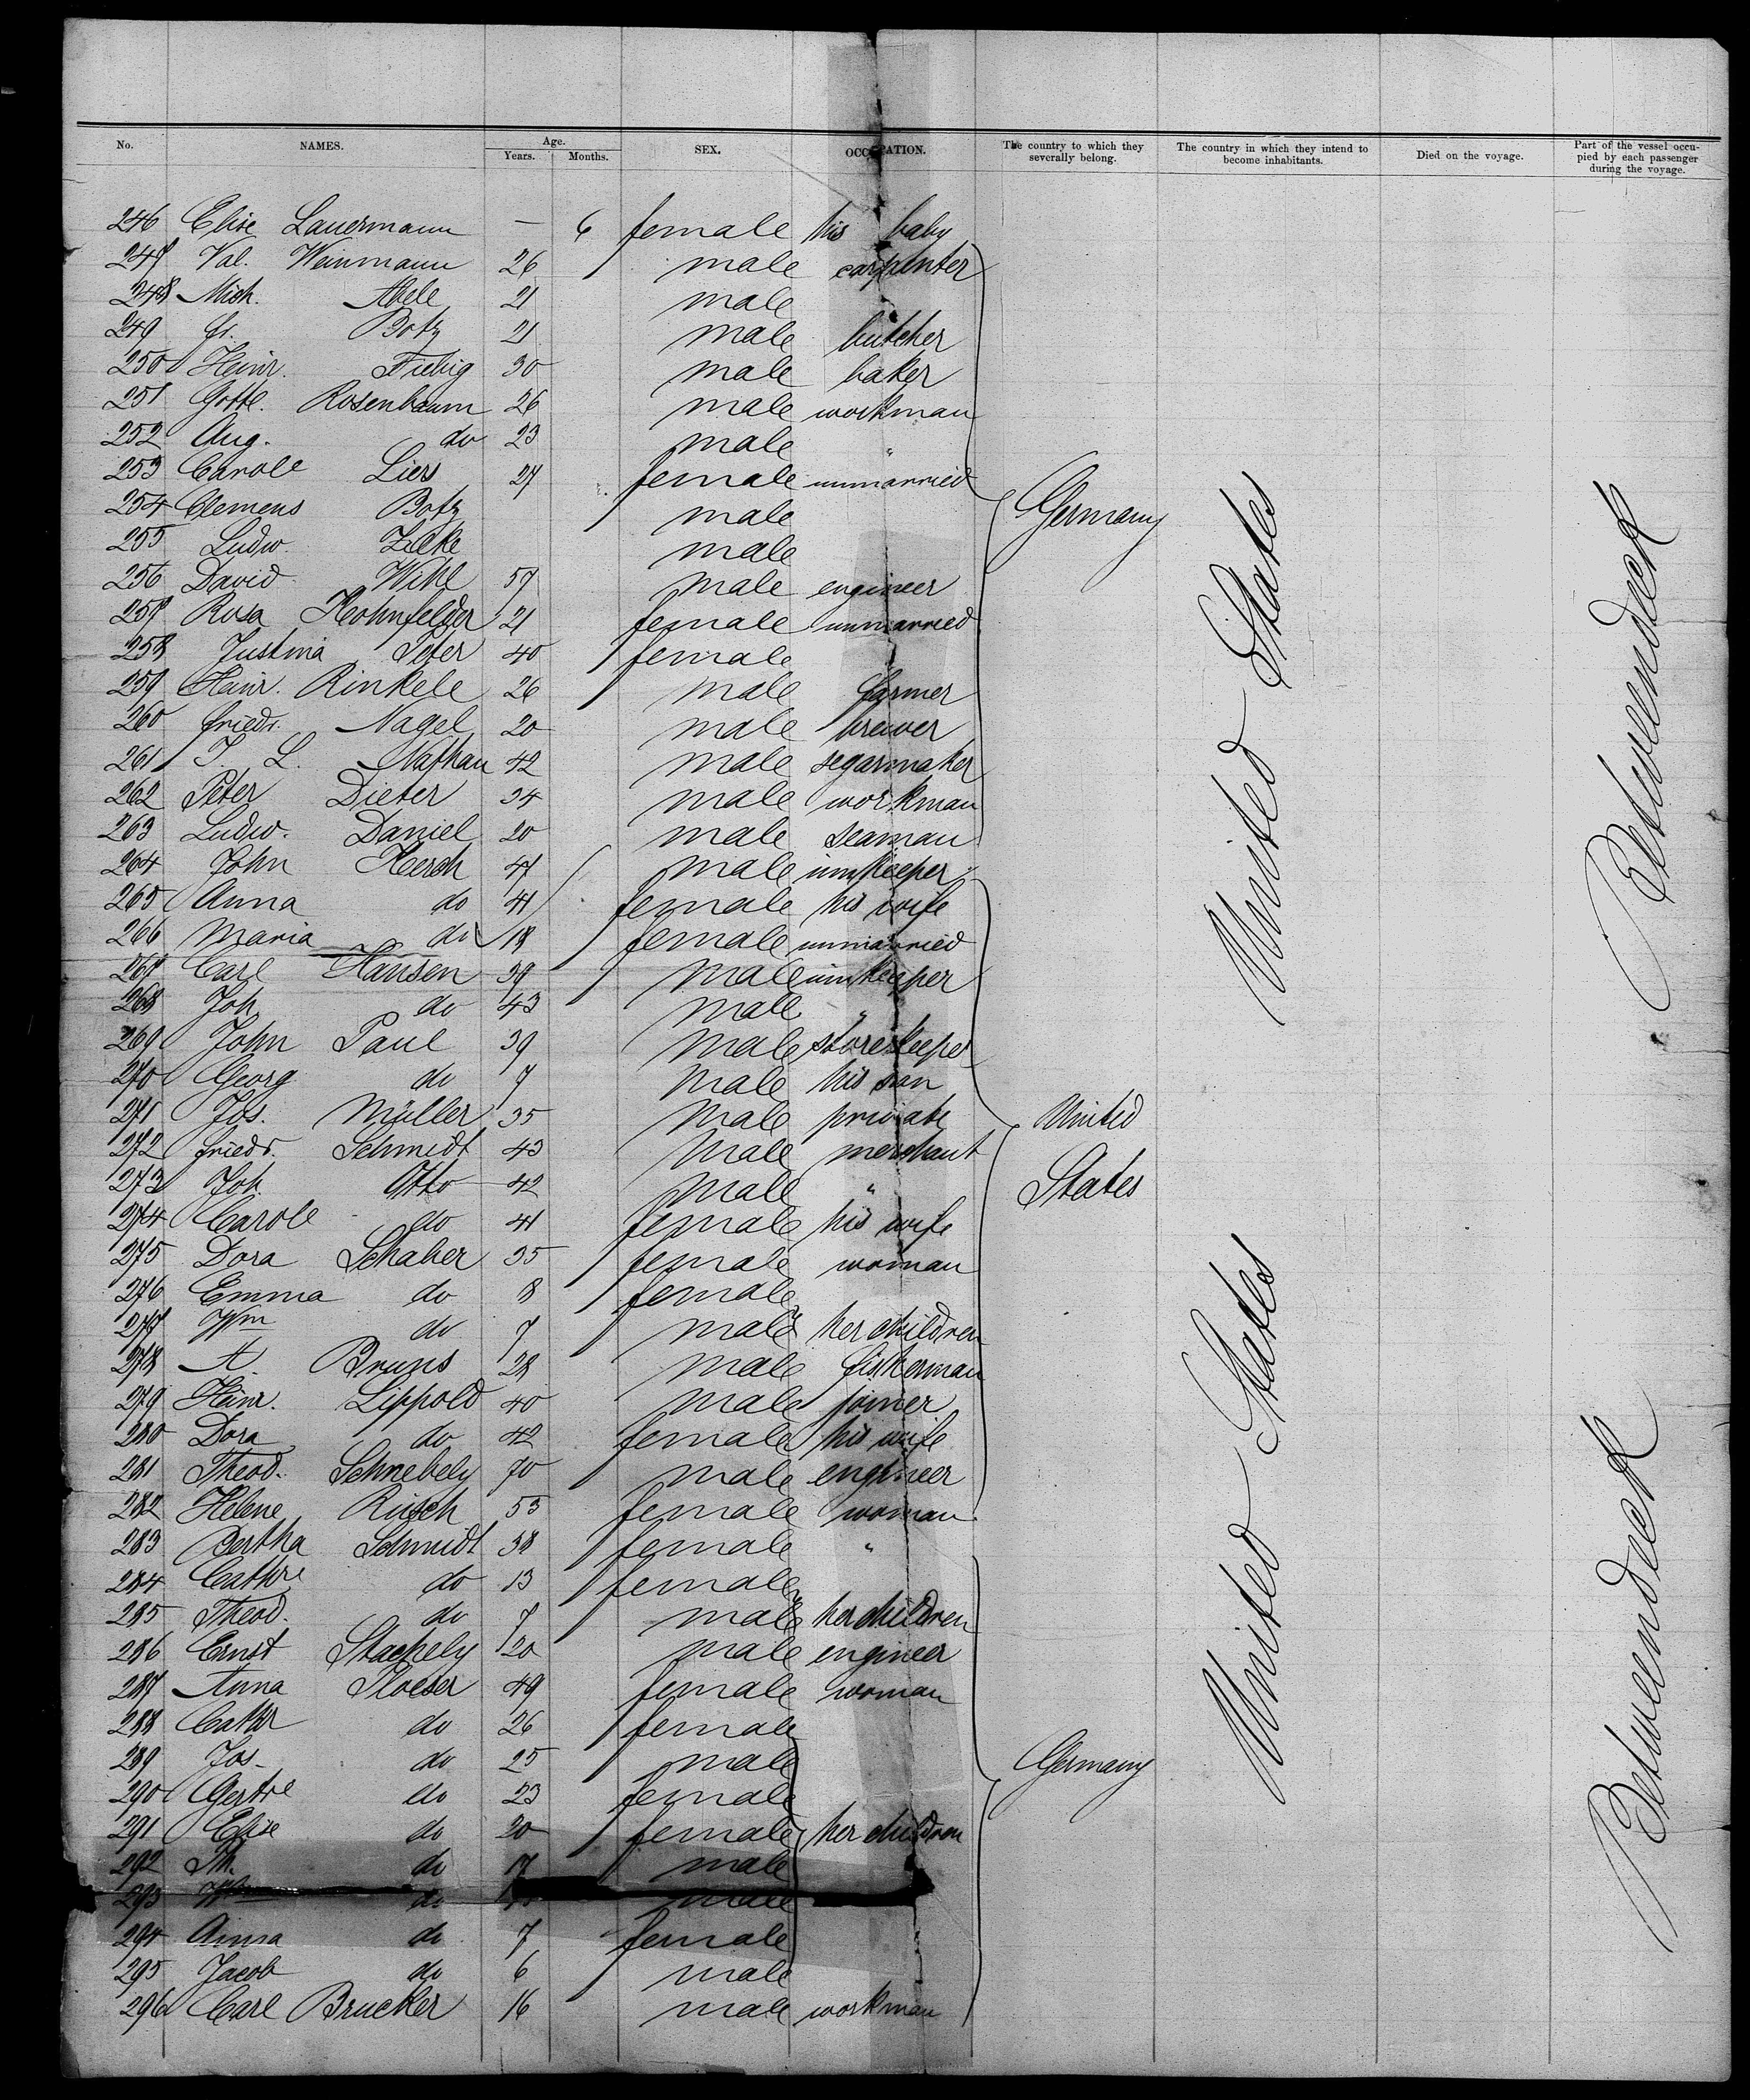 No. NAMES. Age. Years. Months. SEX. OCCUPATION. The country to which they severally belong. The country in which they intend to become inhabitants. Died on the voyage. Part of the vessel occupied by each passenger during the voyage.
246 Elise Lauermann — 6 female his baby
247 Val. Weinmann 26 male carpenter
248 Mich. Abele 21 male "
249 Fr. Botz 21 male butcher
250 Heinr. Fiebig 30 male baker
251 Gottl. Rosenbaum 26 male workman
252 Aug. do 23 male "
253 Carole Liers 27 female unmarried
254 Clemens Botz male
255 Ludw. Zilke male
256 David Wihl 57 male engineer
257 Rosa Hohnfelder 21 female unmarried
258 Justina Peter 40 female
259 Heinr. Rinkele 26 male farmer
260 Friedr. Nagel 20 male brewer
261 J. L. Nathan 42 male segarmaker
262 Peter Dieter 34 male workman
263 Ludw. Daniel 20 male seaman
Germany
264 John Hersh 47 male innkeeper
265 Anna do 41 female his wife
266 Maria do 18 female unmarried
267 Carl Hansen 39 male innkeeper
268 Joh do 43 male "
269 John Paul 39 male storekeeper
270 Georg do 7 male his son
271 Jos. Müller 35 male private
272 Friedr. Schmidt 43 male merchant
273 Joh Otto 42 male "
274 Carole do 41 female his wife
275 Dora Schaber 35 female woman
276 Emma do 8 female
277 Wm do 7 male her children
278 A. Bruns 28 male fisherman
279 Heinr. Lippold 40 male joiner
280 Dora do 42 female his wife
281 Theod. Schnebely 70 male engineer
282 Helene Rusch 53 female woman
United States
283 Bertha Schmidt 38 female "
284 Cathre do 13 female
285 Theod. do 7 male her children
286 Ernst Stachely 20 male engineer
287 Anna Ploeser 49 female woman
288 Cathr do 26 female
289 Jos. do 25 male
290 Gertre do 23 female
291 Elise do 20 female her children
292 Th. do 17 male
293 do male
294 Anna do 7 female
295 Jacob do 6 male
296 Carl Brucker 16 male workman
Germany
United States
United States
Betweendeck
Betweendeck